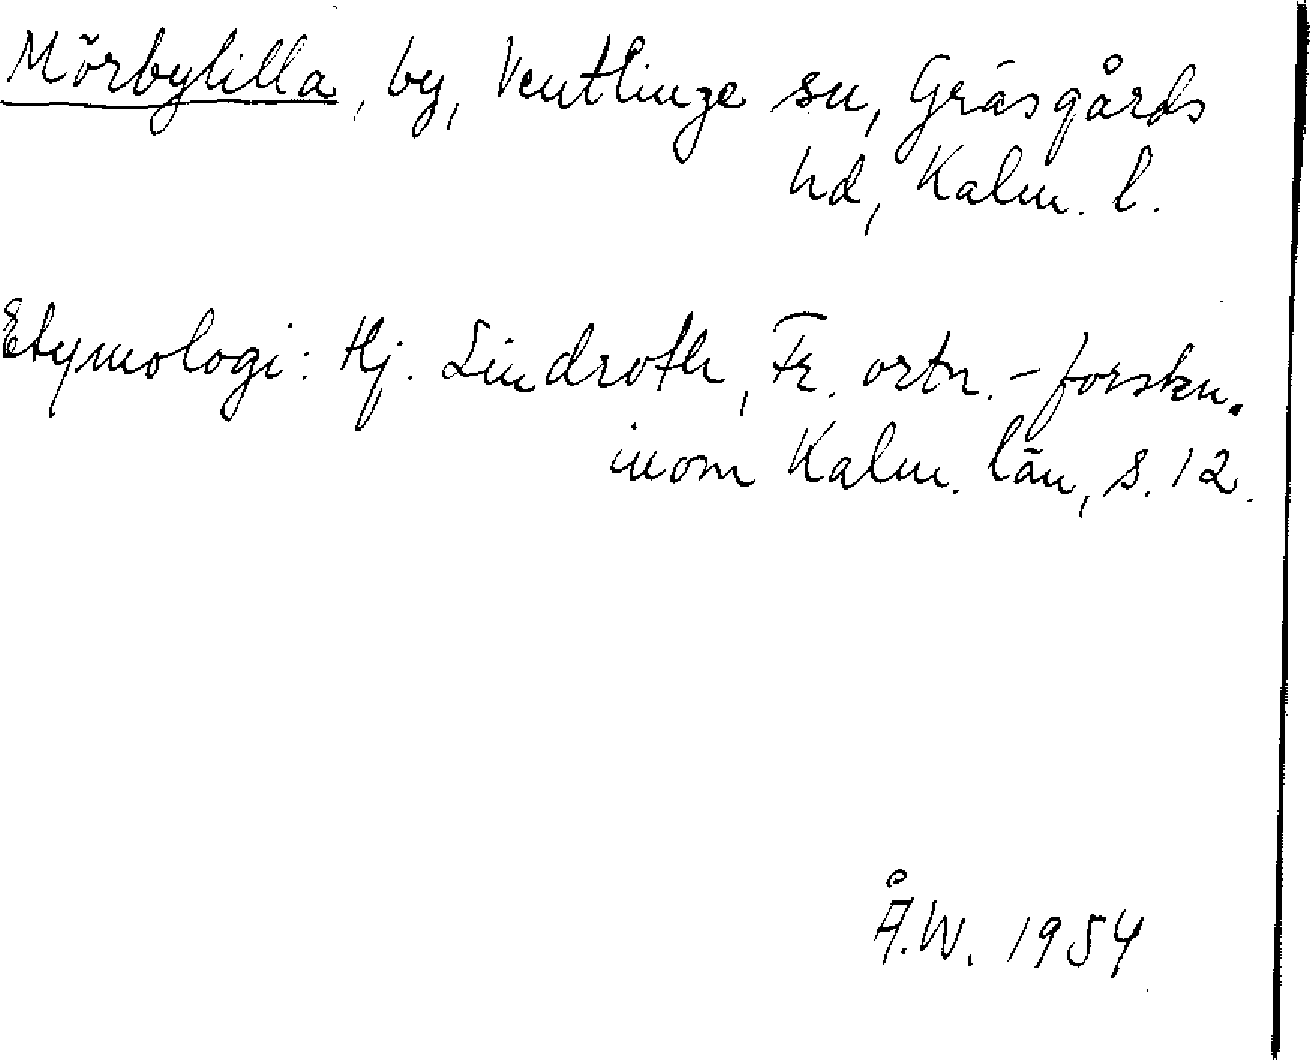 Mörbylilla, by, Ventlinge sn, Gräsgårds
hd, Kalm. l.
Etymologi: Hj. Lindroth, Fr. ortn.-forskn.
inom Kalm. län, s. 12.
Å.W. 1954